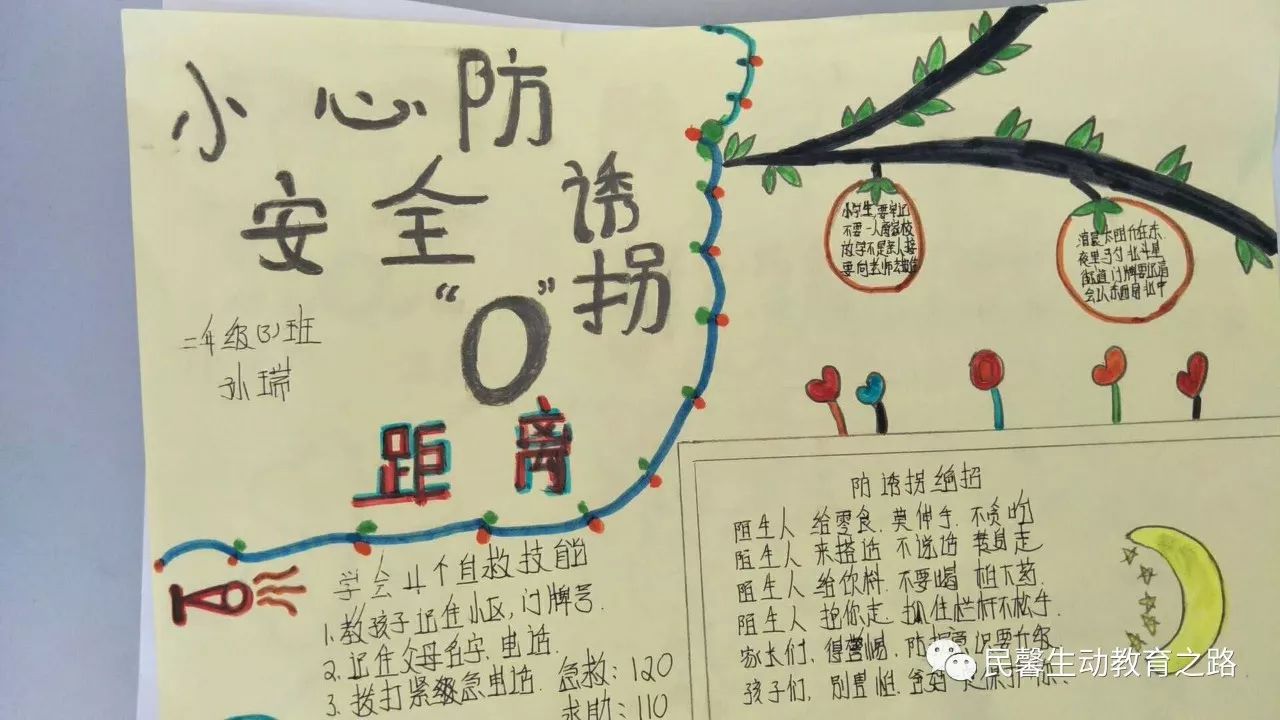 小心防
诱拐
安全
“0”
距离
二年级(3)班
孙瑞
小学生,要牢记
不要一人离家校
放学不是亲人接
要向老师去
清晨太阳
夜里 北斗星
街道门牌要记清
会认东西南北中
学会4个自救技能
1.教孩子记住小区,门牌号.
2.记住父母名字、电话.
3.拨打紧级急电话. 急救:120
求助:110
防诱拐绝招
陌生人 给零食. 莫伸手. 不贪吃
陌生人 来搭话 不说话 转身走
陌生人 给饮料. 不要喝 怕下药.
陌生人 抱你走 抓住栏杆不松手.
家长们, 得警惕, 防拐意识要升级
孩子们, 别畏惧.
民馨生动教育之路